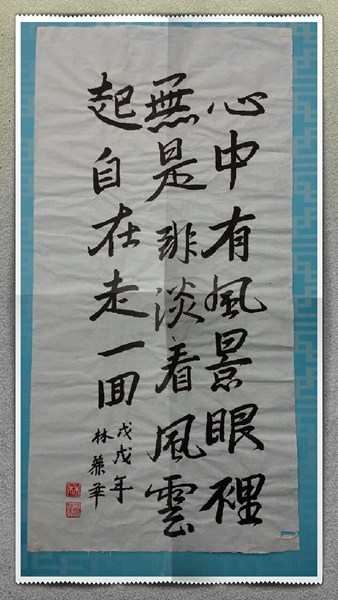 心中有風景眼裡
無是非淡看風雲
起自在走一回
戊戌年
林華